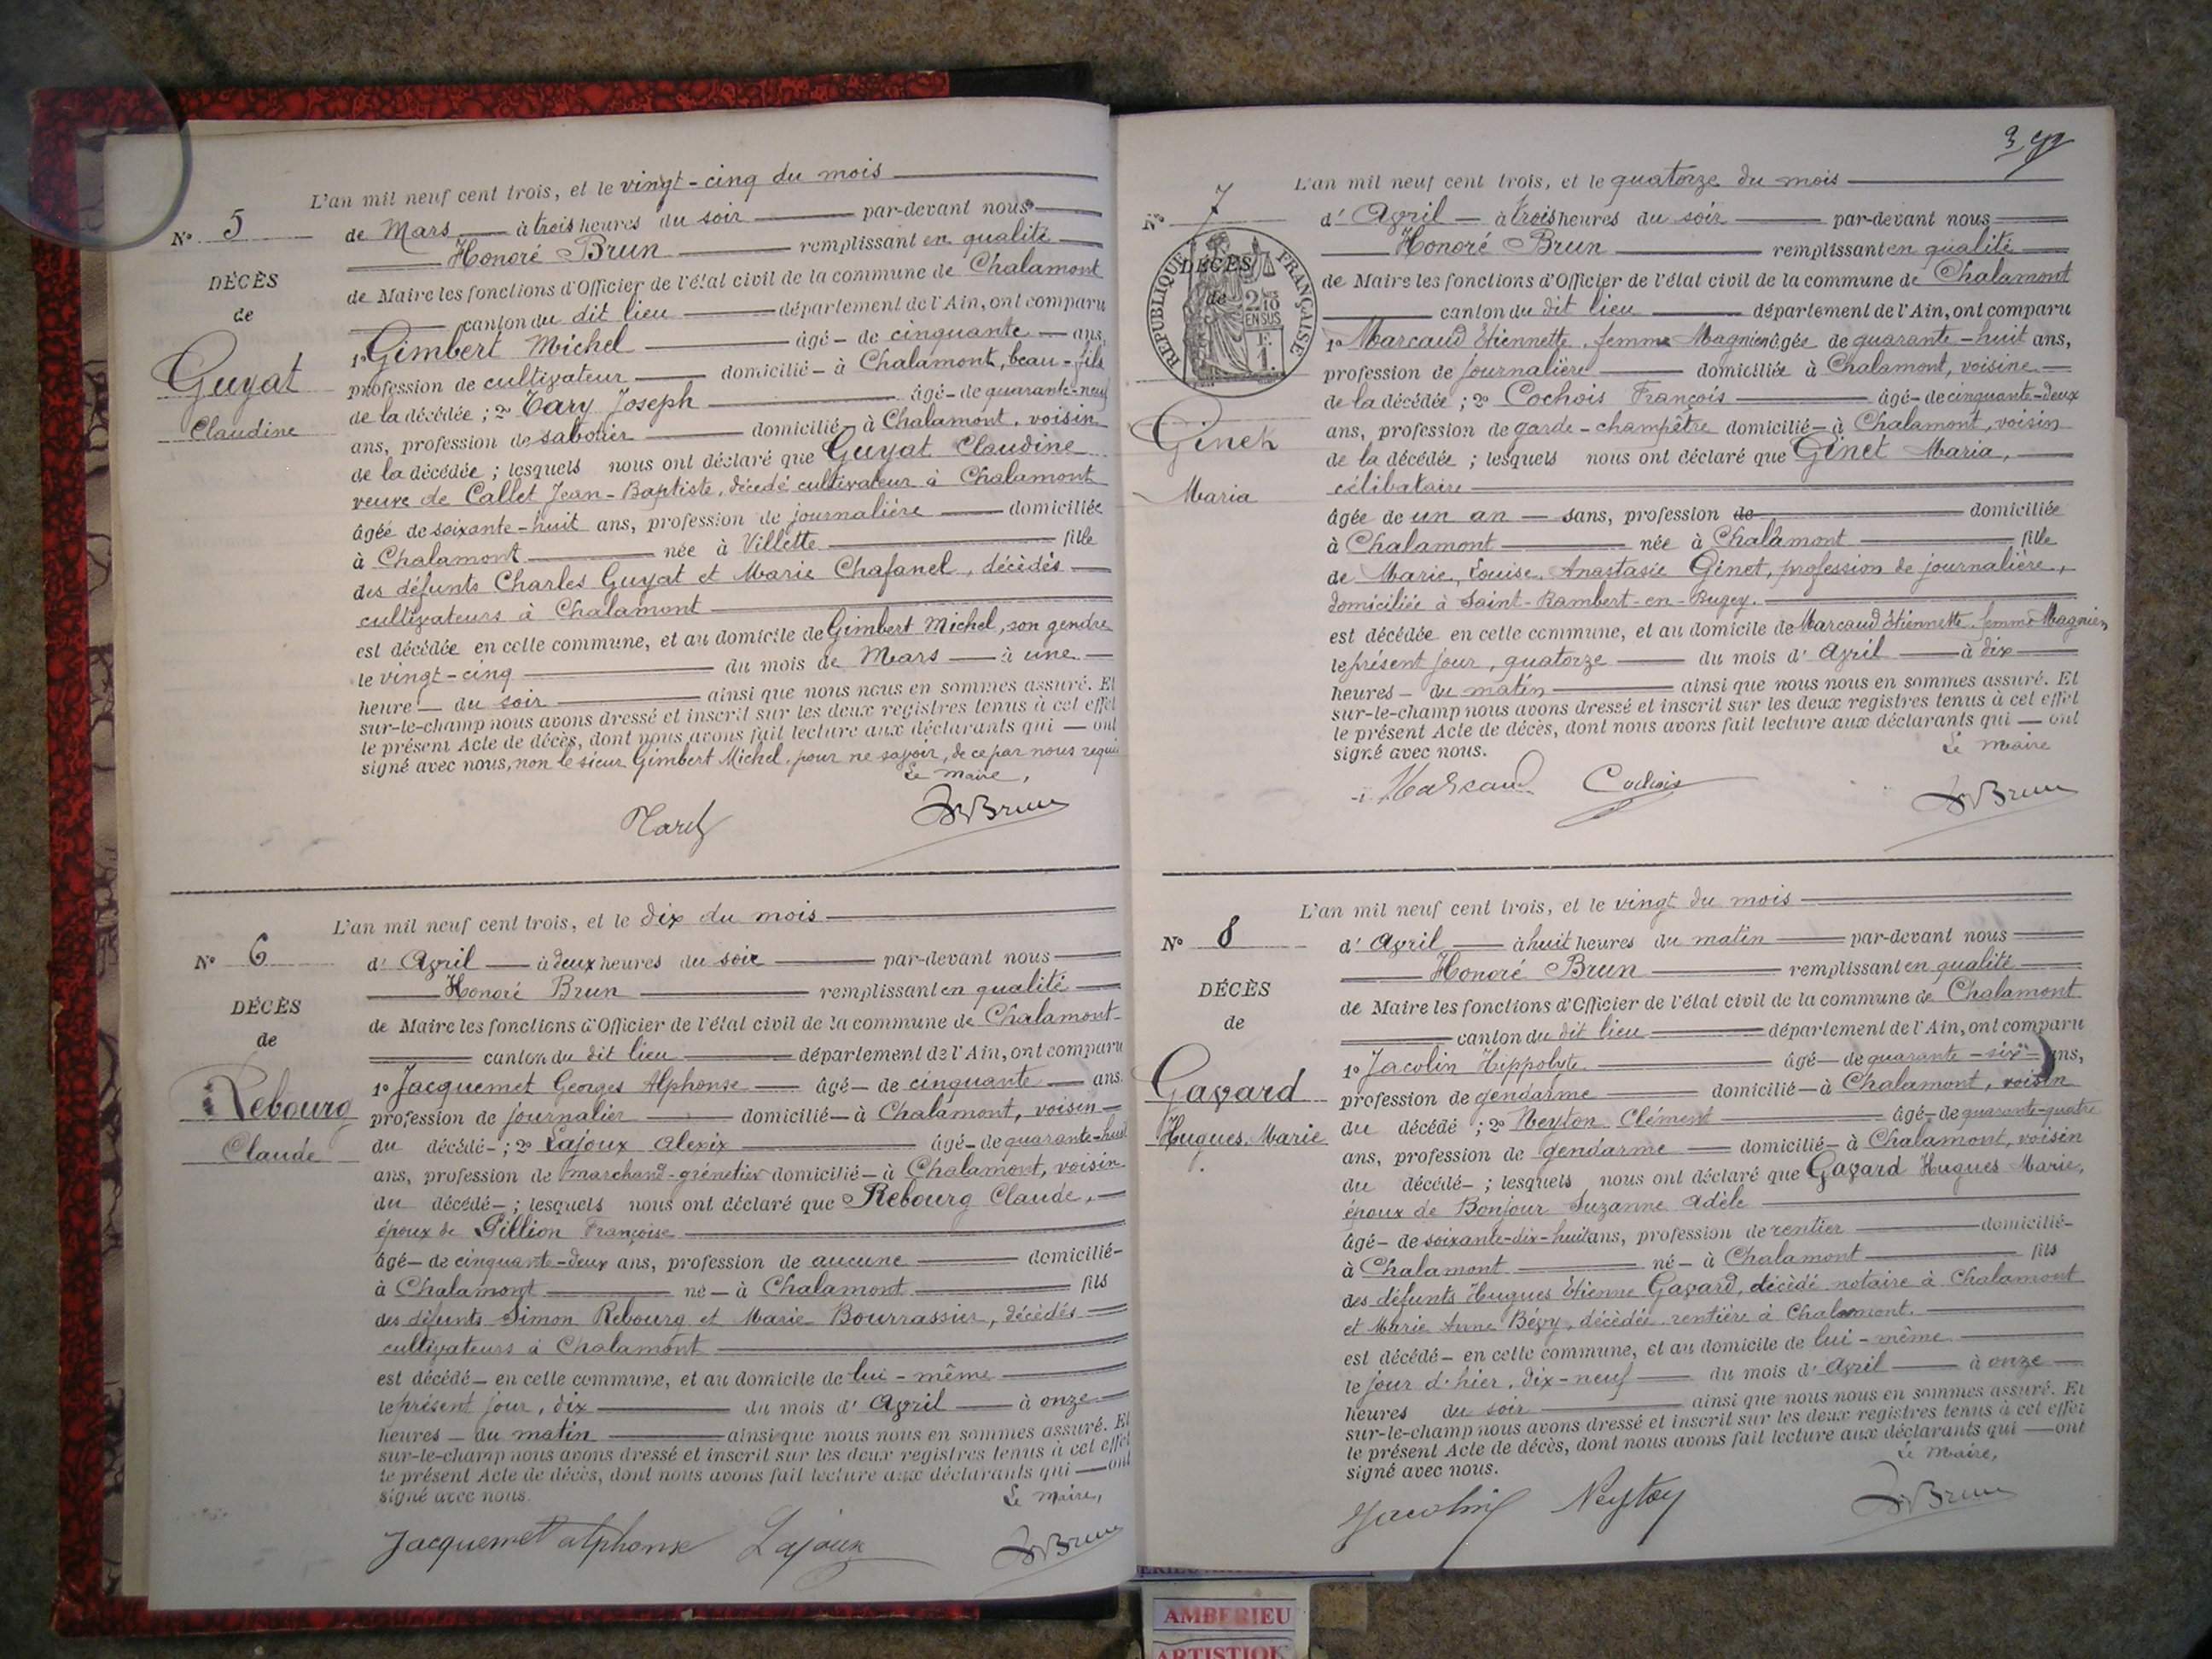 L'an mil neuf cent trois, et le vingt-cinq du mois
N° 5
de Mars à trois heures du soir par-devant nous
Honoré Brun remplissant en qualité
DÉCÈS
de Maire les fonctions d'Officier de l'état civil de la commune de Chalamont
de
canton du dit lieu département de l'Ain, ont comparu
1° Gimbert Michel âgé de cinquante ans,
Guyat
profession de cultivateur domicilié à Chalamont, beau-fils
de la décédée ; 2° Tary Joseph âgé de quarante-neuf
Claudine
ans, profession de sabotier domicilié à Chalamont, voisin
de la décédée ; lesquels nous ont déclaré que Guyat Claudine
veuve de Callet Jean-Baptiste, décédé cultivateur à Chalamont
âgée de soixante-huit ans, profession de journalière domiciliée
à Chalamont née à Villette fille
des défunts Charles Guyat et Marie Chafanel, décédés
cultivateurs à Chalamont
est décédée en cette commune, et au domicile de Gimbert Michel, son gendre
le vingt-cinq du mois de Mars à une
heure du soir ainsi que nous nous en sommes assuré. Et
sur-le-champ nous avons dressé et inscrit sur les deux registres tenus à cet effet
le présent Acte de décès, dont nous avons fait lecture aux déclarants qui ont
signé avec nous, non le sieur Gimbert Michel, pour ne savoir, de ce par nous requis
Le Maire,
HBrun
L'an mil neuf cent trois, et le dix du mois
N° 6
d' Avril à deux heures du soir par-devant nous
Honoré Brun remplissant en qualité
DÉCÈS
de Maire les fonctions d'Officier de l'état civil de la commune de Chalamont
de
canton du dit lieu département de l'Ain, ont comparu
1° Jacquemet Georges Alphonse âgé de cinquante ans.
Rebourg
profession de journalier domicilié à Chalamont, voisin
Claude
du décédé ; 2° Lajoux Alexix âgé de quarante-huit
ans, profession de marchand-grènetier domicilié à Chalamont, voisin
du décédé ; lesquels nous ont déclaré que Rebourg Claude,
époux de Pillion Françoise
âgé de cinquante-deux ans, profession de aucune domicilié
à Chalamont né à Chalamont fils
des défunts Simon Rebourg et Marie Bourrassier, décédés
cultivateurs à Chalamont
est décédé en cette commune, et au domicile de lui-même
le présent jour, dix du mois d' Avril à onze
heures du matin ainsi que nous nous en sommes assuré. Et
sur-le-champ nous avons dressé et inscrit sur les deux registres tenus à cet effet
le présent Acte de décès, dont nous avons fait lecture aux déclarants qui ont
signé avec nous.
Le Maire,
Jacquemet alphonse Lajoux HBrun
3
L'an mil neuf cent trois, et le quatorze du mois
N° 7
d' Avril à trois heures du soir par-devant nous
Honoré Brun remplissant en qualité
RÉPUBLIQUE FRANÇAISE
DÉCÈS
de
2/10 EN SUS
F. 1.
de Maire les fonctions d'Officier de l'état civil de la commune de Chalamont
canton du dit lieu département de l'Ain, ont comparu
1° Marcaud Etiennette, femme Magnien âgée de quarante-huit ans,
profession de journalière domiciliée à Chalamont, voisine
de la décédée ; 2° Cochois François âgé de cinquante-deux
Ginet
ans, profession de garde-champêtre domicilié à Chalamont, voisin
de la décédée ; lesquels nous ont déclaré que Ginet Maria,
Maria
célibataire
âgée de un an sans, profession de domiciliée
à Chalamont née à Chalamont fille
de Marie, Louise, Anastasie Ginet, profession de journalière,
domiciliée à Saint-Rambert-en-Bugey.
est décédée en cette commune, et au domicile de Marcaud Etiennette, femme Magnien
le présent jour, quatorze du mois d' Avril à dix
heures du matin ainsi que nous nous en sommes assuré. Et
sur-le-champ nous avons dressé et inscrit sur les deux registres tenus à cet effet
le présent Acte de décès, dont nous avons fait lecture aux déclarants qui ont
signé avec nous.
Le Maire
Marcaud Cochois HBrun
L'an mil neuf cent trois, et le vingt du mois
N° 8
d' Avril à huit heures du matin par-devant nous
Honoré Brun remplissant en qualité
DÉCÈS
de Maire les fonctions d'Officier de l'état civil de la commune de Chalamont
de
canton du dit lieu département de l'Ain, ont comparu
1° Jacolin Hippolyte âgé de quarante-six ans,
Gavard
profession de gendarme domicilié à Chalamont, voisin
du décédé ; 2° Neyton Clément âgé de quarante-quatre
Hugues, Marie
ans, profession de gendarme domicilié à Chalamont, voisin
du décédé ; lesquels nous ont déclaré que Gavard Hugues Marie,
époux de Bonjour Suzanne Adèle
âgé de soixante-dix-huit ans, profession de rentier domicilié
à Chalamont né à Chalamont fils
des défunts Hugues Etienne Gavard, décédé notaire à Chalamont
et Marie Anne Bévy, décédée rentière à Chalamont.
est décédé en cette commune, et au domicile de lui-même
le jour d'hier, dix-neuf du mois d' Avril à onze
heures du soir ainsi que nous nous en sommes assuré. Et
sur-le-champ nous avons dressé et inscrit sur les deux registres tenus à cet effet
le présent Acte de décès, dont nous avons fait lecture aux déclarants qui ont
signé avec nous.
Le Maire,
Jacolin Neyton HBrun
AMBERIEU